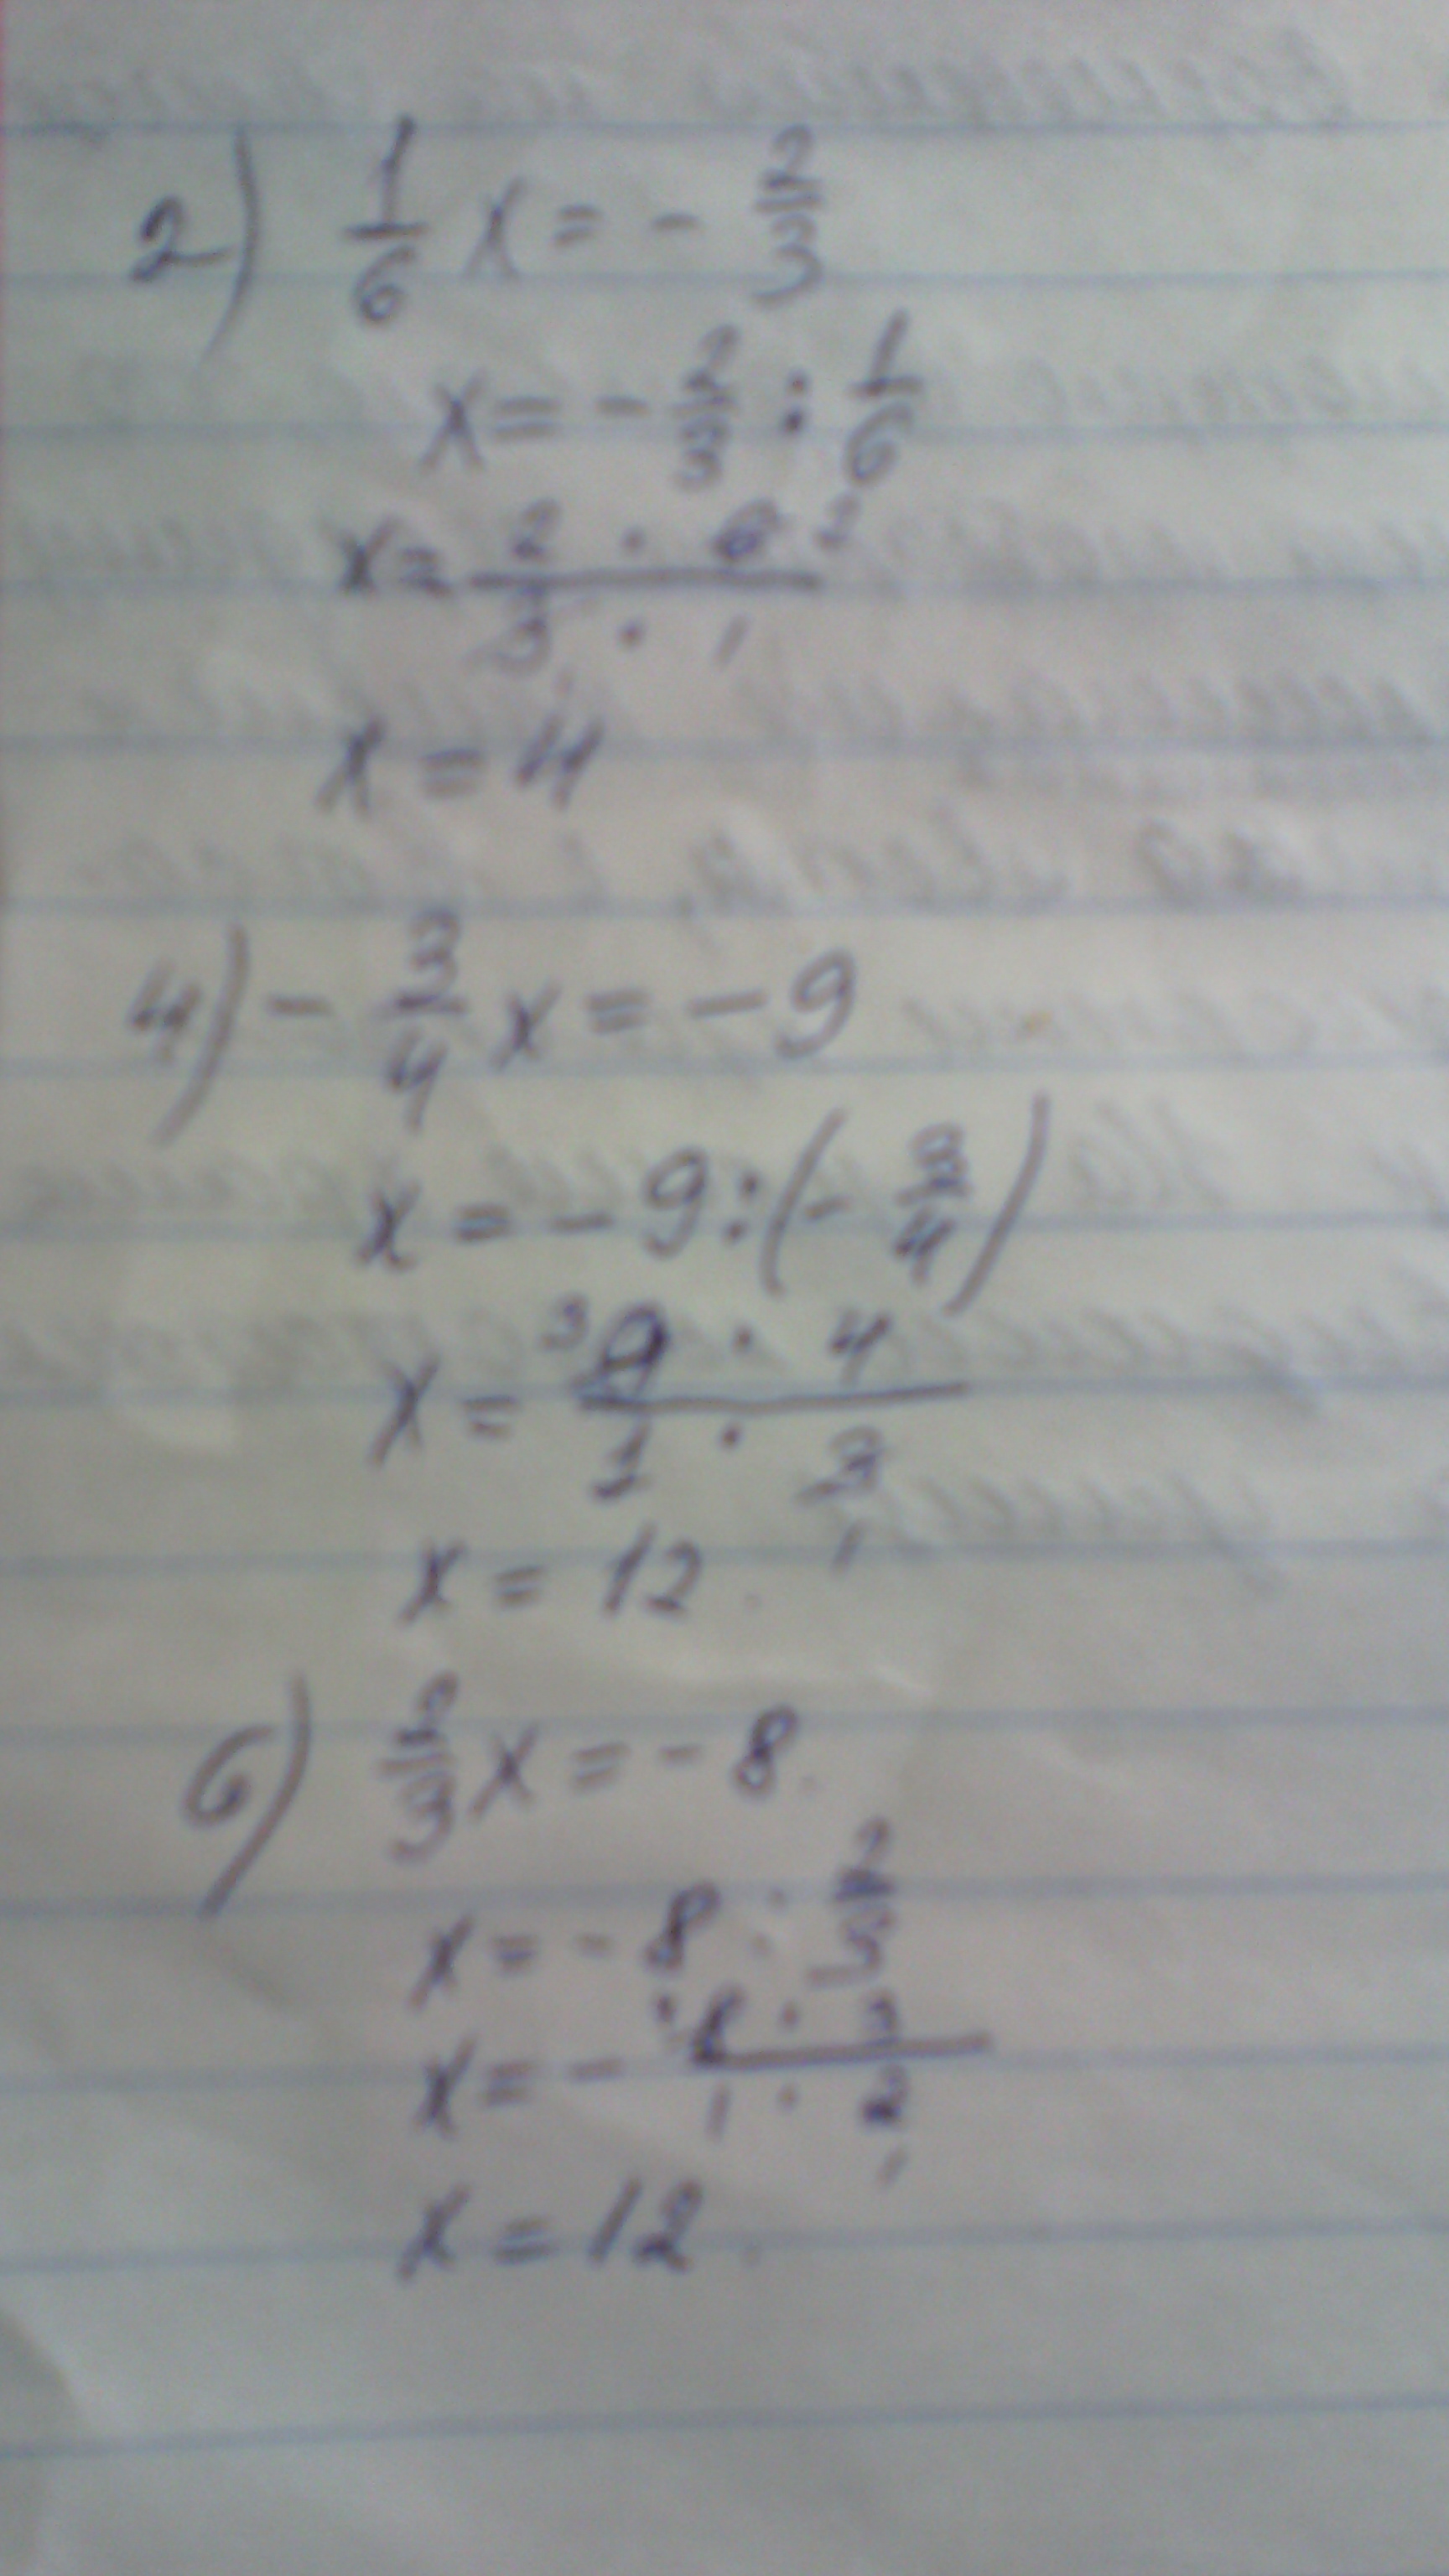 2) 1/6 x = - 2/3
x = - 2/3 : 1/6
x = 2 · 6 2 / 3 · 1
x = 4
4) - 3/4 x = - 9
x = - 9 : (- 3/4)
x = 3 9 · 4 / 1 · 3 1
x = 12
6) 2/3 x = - 8
x = - 8 : 2/3
x = - 8 · 3 / 1 · 2 1
x = 12